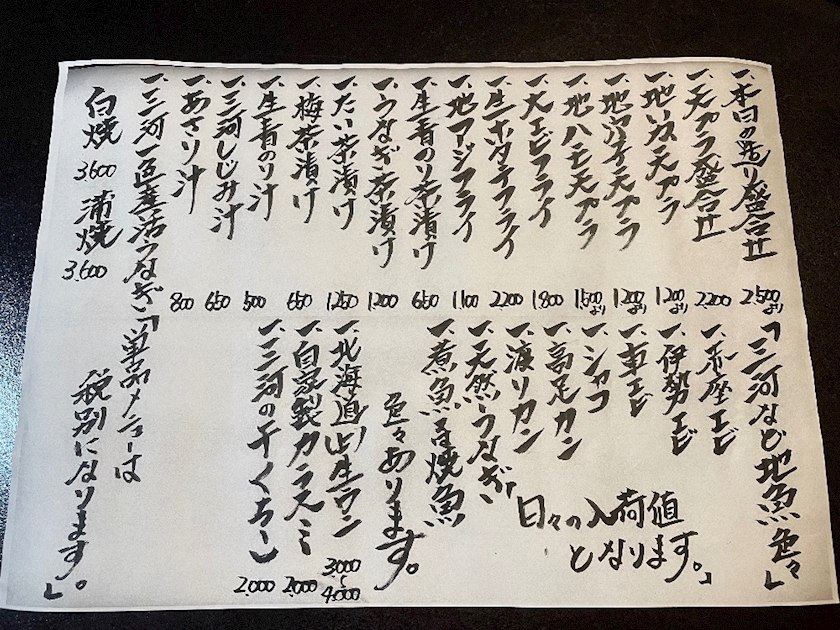 一、本日の造り盛合せ 2,500より
一、天プラ盛合せ 2,200
一、地いか天プラ 1,200より
一、地穴子天プラ 1,200より
一、地ハモ天プラ 1,500より
一、大エビフライ 1,800
一、生ホタテフライ 2,200
一、地アージフライ 1,100
一、生青のり茶漬け 650
一、うなぎ茶漬け 1,200
一、たい茶漬け 1,250
一、梅茶漬け 650
一、生青のり汁 500
一、三河しじみ汁 650
一、あさり汁 800
一、三河一色産活うなぎ
白焼 3,600 蒲焼 3,600
「三河など地魚色々」
一、赤座エビ
一、伊勢エビ
一、車エビ
一、シャコ
一、高足カニ
一、渡りカニ
一、天然うなぎ
「日々の入荷値
となります。」
一、煮魚&焼魚
色々あります。
一、北海道産生ウニ 3,000〜4,000
一、自家製カラスミ 2,000
一、三河の干くちこ 2,000
「単品メニューは
税別になります。」